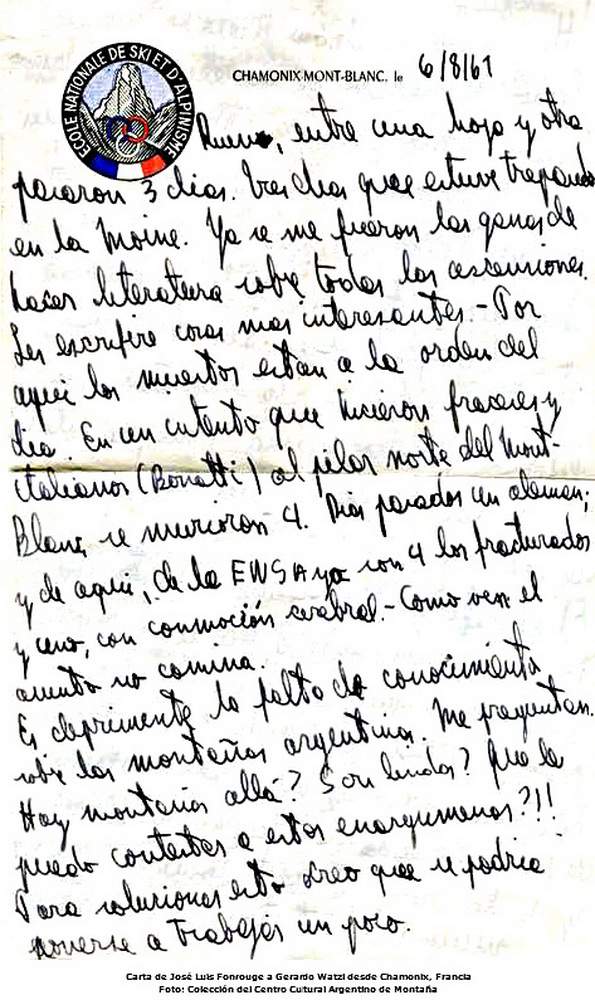 ECOLE NATIONALE DE SKI ET D'ALPINISME
CHAMONIX-MONT-BLANC. le 6/8/61
Bueno, entre una hoja y otra
pasaron 3 dias. Tres dias que estuve trepando
en la Moine. Ya se me fueron las ganas de
hacer literatura sobre todas las ascensiones.
Les escribire cosas mas interesantes.- Por
aqui los muertos estan a la orden del
dia. En un intento que hicieron franceses y
italianos (Bonatti) al pilar norte del Mont-
Blanc se murieron 4. Dias pasados un aleman;
y de aqui, de la ENSA ya son 4 los fracturados
y uno, con conmoción cerebral.- Como ven el
asunto no camina.
Es deprimente la falta de conocimiento
sobre las montañas argentinas. Me preguntan.
Hay montañas allá? Son lindas? Que le
puedo contestar a estos energumenos?!!
Para solucionar esto creo que se podria
ponerse a trabajar un poco.
Carta de José Luis Fonrouge a Gerardo Watzl desde Chamonix, Francia
Foto: Colección del Centro Cultural Argentino de Montaña